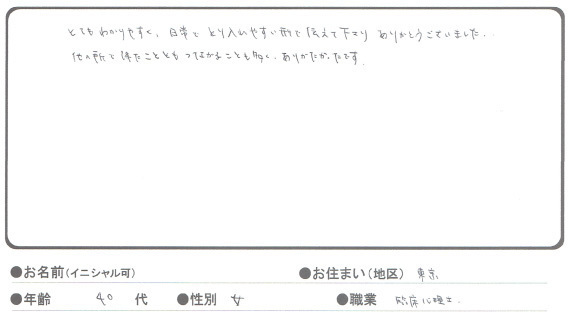 とても わかりやすく、日常で とり入れやすい所で 伝えて下さり ありがとうございました。
他の所で得たこととも つながることも多く、ありがたかったです。
●お名前(イニシャル可) ●お住まい(地区) 東京
●年齢 40 代 ●性別 女 ●職業 臨床心理士.